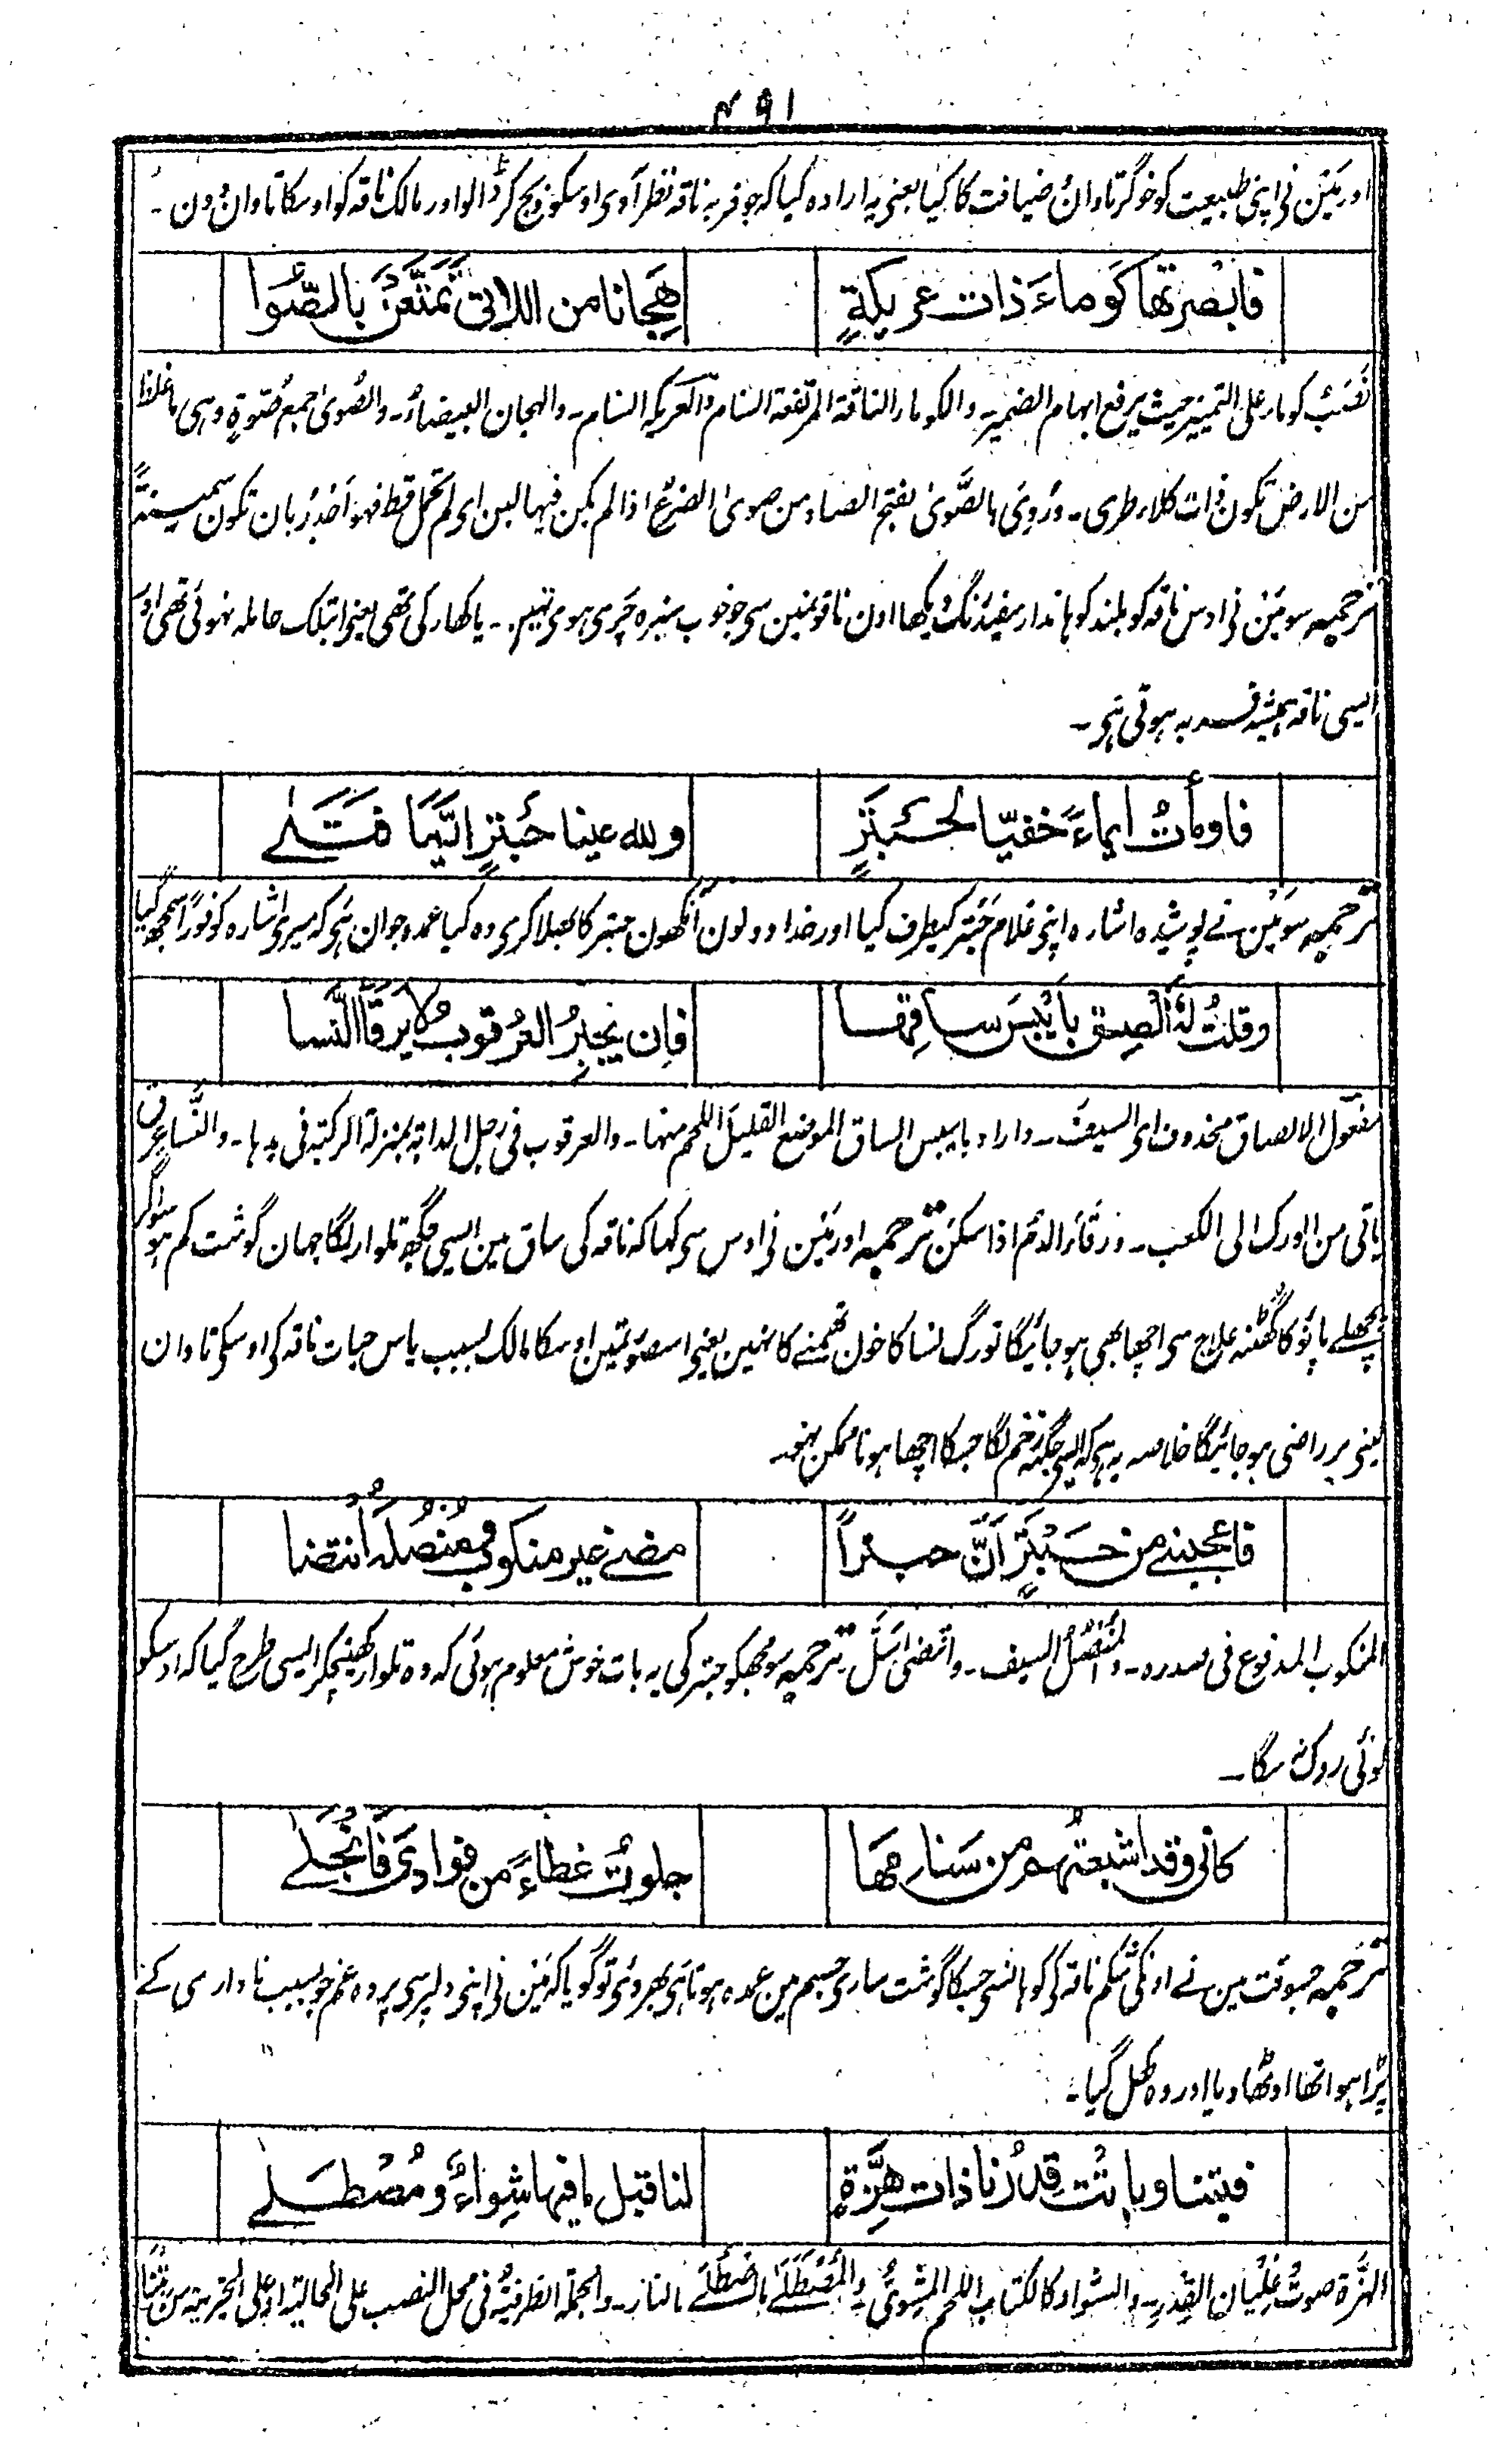 ۴۹۱
اور مَین نی اپنی طبیعت کو خوگر تاوانِ ضیافت کا کیا یعنی یہ ارادہ کیا کہ جو فربہ ناقہ نظر آوی اوسکو ذبح کر ڈالو اور مالک ناقہ کو اوسکا تاوان دون ۔
فابصرتها كَوماءَ ذات عريكةٍ هِجانا من اللاتى تمتَّعنَ بالصُّوَا
نصَبَ کوماء علی التمییز حیث یرفع ابہام الضمیر۔ والکوماء الناقۃ المرتفعۃ السنام والعریکہ السنام۔ والہجان البیضاء۔ والصُوی جمع صُوَّۃٍ وہی ما غلظ
من الارض تکون ذات کلاء طری۔ ورُوِیَ بالصَّوَی بفتح الصاد من صوی الضرعُ اذا لم یکن فیہا لبن ای لم تحمل قط فہو اَجْدَرُ بان تکون سمینۃً
ترجمہ سو مَین نی اوس ناقہ کو بلند کوہاندار سفید رنگ دیکھا اون ناقو نمین سی جو خوب سبزہ چَری ہوی تہیں۔ یا کھار کی تھی یعنی ابتلک حاملہ نہوئی تھی اور
ایسی ناقہ ہمیشہ فربہ ہوتی ہَی ۔
فاومأتُ ايماءً خفيّا لحَبْتَرٍ ولله عينا حَبترٍ ايَّما فَتَىٰ
ترجمہ سو مَین نے پوشیدہ اشارہ اپنی غلام حَبتَر کیطرف کیا اور خدا دونون آنکھون حبتر کا بھلا کری وہ کیا عمدہ جوان ہَی کہ میری اشارہ کو فورًا سمجھ گیا
وقلتُ لهٗ اَلصِق بأيْبَسِ ساقِها فاِن يُجبَرُ العُرقوبُ لا يرقَأ النَّسا
مفعول الالصاق محذوف ای السیفَ۔ واراد بایبس الساق الموضع القلیلَ اللحم منہا۔ والعرقوب فی رجل الدابۃ بمنزلۃ الرکبۃ فی یدہا۔ والنَّسا عرق
یاتی من الورک الی الکعب۔ ورَقَأ الدمُ اذا سکنَ ترجمہ اور مَین نی اوس سی کہا کہ ناقہ کی ساق مین ایسی جگہہ تلوار لگا جہان گوشت کم ہو سو اگر
پچھلے پانوکا گھٹنہ علاج سی اچھا بھی ہو جائیگا تو رگ نسا کا خون تھمنے کا نہین یعنی اس صورتمین اوسکا مالک بسبب یاس حیات ناقہ کی اوسکی تاوان
لینی پر راضی ہو جائیگا خلاصہ یہ ہی کہ ایسی جگہہ زخم لگا جسکا اچھا ہونا ممکن نہو۔
فاعجبنى من حَبْتَرٍ اَنَّ حبتراً مضى غير منكوبٍ ومُنصُلَهٗ انتضا
المنکوب المدفوع فی صدرہ۔ والمُنصُلُ السیف۔ وانتضی اسَلَّ ترجمہ سو مجھکو حبتر کی یہ بات خوش معلوم ہوئی کہ وہ تلوار کھینچکر ایسی طرح گیا کہ اوسکو
کوئی روک نہ سکا ۔
كانى وقد اشبعتُهم من سَنامِها جلوتُ غطاءً من فوادىَ فانجَلےٰ
ترجمہ جسوقت مین نے اونکی شکم ناقہ کی کوہان سی جسکا گوشت ساری جسم مین عمدہ ہوتا ہی بھر دئی تو گویا کہ مَین نی اپنی دلپر سی پردہ غم جو بسبب ناداری کے
پڑا ہوا تھا اوٹھا دیا اور وہ کھل گیا ۔
فبتنا وباتت قِدْرُنا ذات هِزَّةٍ لنا قبل ما فيها شِواءٌ ومُصْطَلے
الہزّۃ صوت غلیان القِدر۔ والشواء کالکتاب اللحم المشویُّ والمُصْطَلَے بالضم ما یصطلے بالنار۔ والجملۃ الظرفیۃُ فی محل النصب علی الحالیۃ او علی الخبریۃ من بتنا